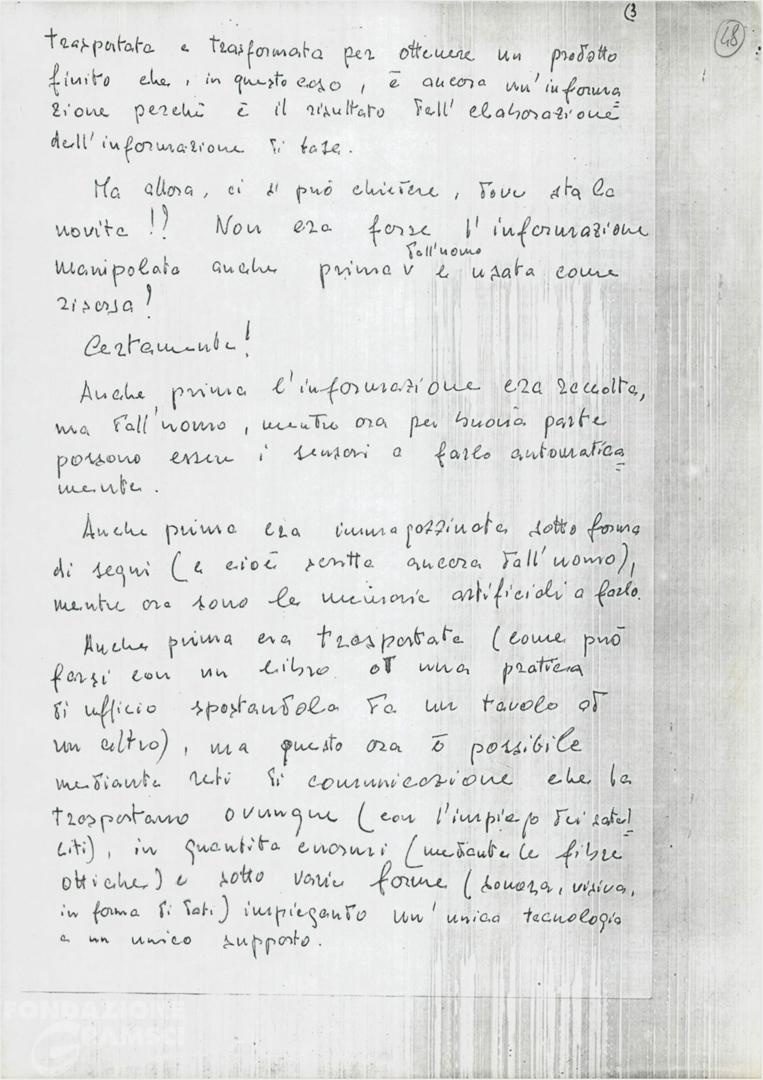 (3
48
trasportata e trasformata per ottenere un prodotto
finito che, in questo caso, è ancora un'informa=
zione perchè è il risultato dell'elaborazione
dell'informazione di base.
Ma allora, ci si può chiedere, dove sta la
novità!? Non era forse l'informazione
dall'uomo
manipolata anche prima v e usata come
risorsa!
Certamente!
Anche prima l'informazione era raccolta,
ma dall'uomo, mentre ora per buona parte
possono essere i sensori a farlo automatica=
mente.
Anche prima era immagazzinata sotto forma
di segni (e cioè scritta ancora dall'uomo),
mentre ora sono le memorie artificiali a farlo.
Anche prima era trasportata (come può
farsi con un libro od una pratica
di ufficio spostandola da un tavolo ad
un altro), ma questo ora è possibile
mediante reti di comunicazione che la
trasportano ovunque (con l'impiego dei satel=
liti), in quantità enormi (mediante le fibre
ottiche) e sotto varie forme (sonora, visiva,
in forma di dati) impiegando un'unica tecnologia
e un unico supporto.
FONDAZIONE
GRAMSCI